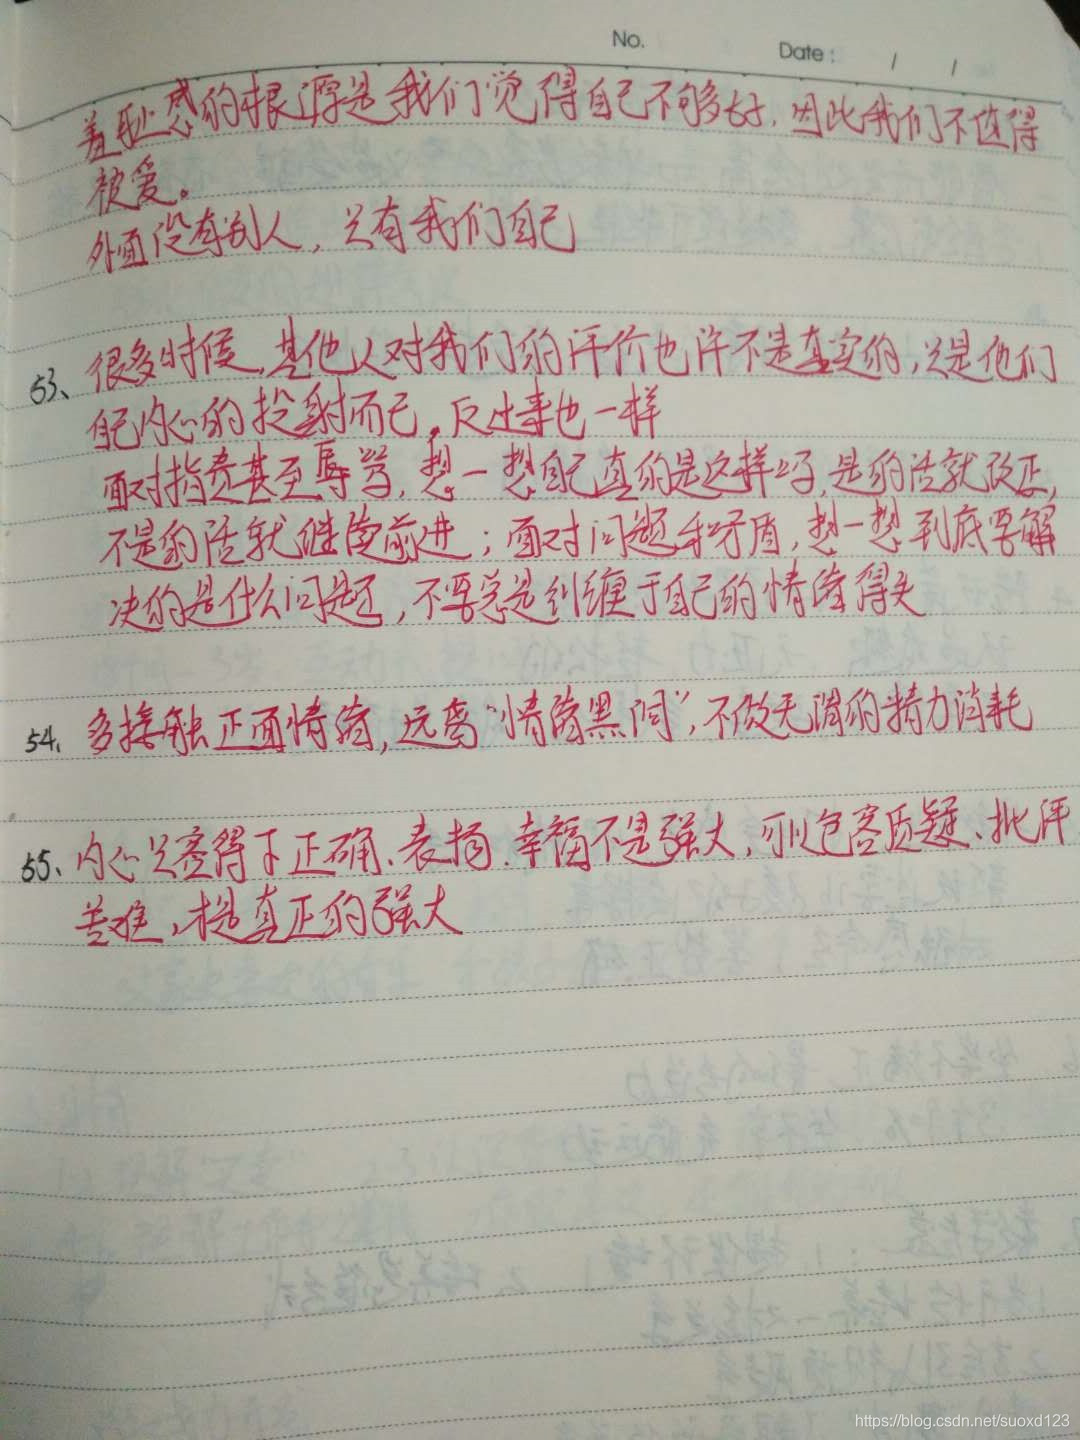 No.
Date: / /
羞耻感的根源是我们觉得自己不够好，因此我们不值得
被爱。
外面没有别人，只有我们自己
53、很多时候，其他人对我们的评价也许不是真实的，只是他们
自己内心的投射而已。反过来也一样
面对指责甚至辱骂，想一想自己真的是这样吗，是的话就改正，
不是的话就继续前进；面对问题和矛盾，想一想到底要解
决的是什么问题，不要总是纠缠于自己的情绪得失
54、多接触正面情绪，远离“情绪黑洞”，不做无谓的精力消耗
55、内心只容得下正确、表扬、幸福不是强大，可以包容质疑、批评
苦难，才是真正的强大
https://blog.csdn.net/suoxd123